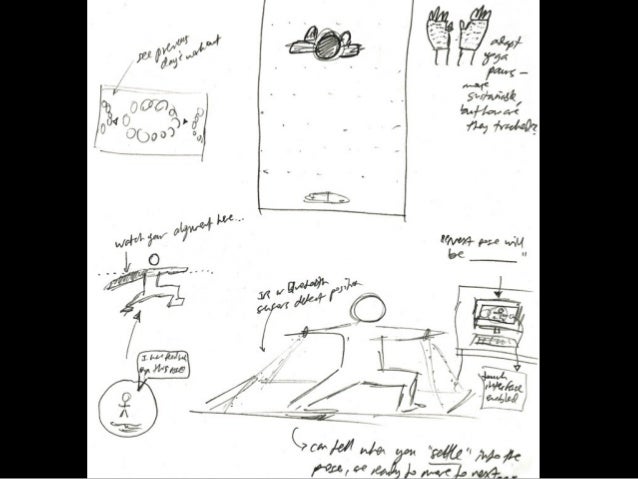 see previous
day's workout
adapt
yoga
paws –
more
sustainable,
but how are
they tracked?
watch your alignment here...
"next pose will
be ______"
IR or
sensors detect position
I
on this pose
touch
interface
enabled
can tell when you "settle" into the
pose, are ready to move to next...